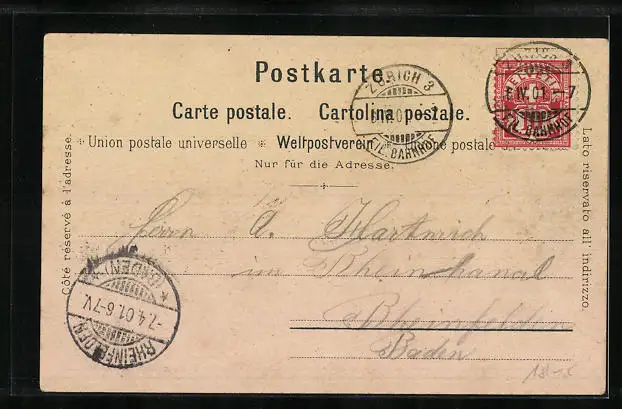 Postkarte.
Carte postale. Cartolina postale.
Union postale universelle * Weltpostverein postale
Nur für die Adresse.
Côté réservé à l'adresse.
Lato riservato all' indirizzo.
ZÜRICH 3
FIL. BAHNHOF
HELVETIA
6.IV.01. -7
FIL. BAHNHOF
Herrn A. Hartmich
im Rheinkanal
Rheinfelden
Baden
RHEINFELDEN
(BADEN) *
-7.4.01.6-7V.